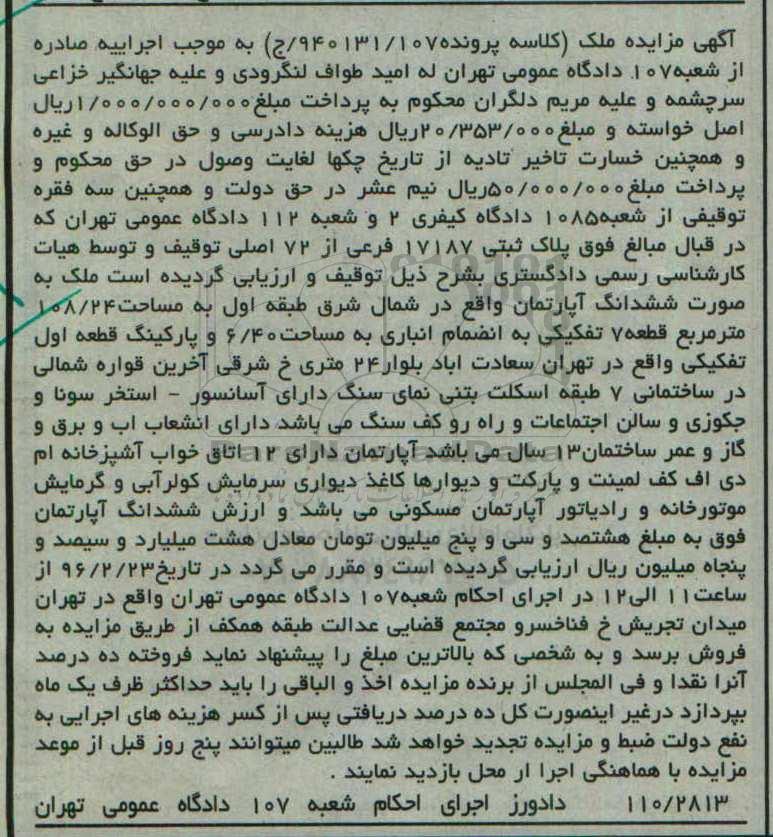 آگهی مزایده ملک (کلاسه پرونده۹۴۰۱۳۱/۱۰۷/ج) به موجب اجراییه صادره
از شعبه۱۰۷ دادگاه عمومی تهران له امید طواف لنگرودی و علیه جهانگیر خزاعی
سرچشمه و علیه مریم دلگران محکوم به پرداخت مبلغ۱/۰۰۰/۰۰۰/۰۰۰ریال
اصل خواسته و مبلغ۲۰/۳۵۳/۰۰۰ریال هزینه دادرسی و حق الوکاله و غیره
و همچنین خسارت تاخیر تادیه از تاریخ چکها لغایت وصول در حق محکوم و
پرداخت مبلغ۵۰/۰۰۰/۰۰۰ریال نیم عشر در حق دولت و همچنین سه فقره
توقیفی از شعبه۱۰۸۵ دادگاه کیفری ۲ و شعبه ۱۱۲ دادگاه عمومی تهران که
در قبال مبالغ فوق پلاک ثبتی ۱۷۱۸۷ فرعی از ۷۲ اصلی توقیف و توسط هیات
کارشناسی رسمی دادگستری بشرح ذیل توقیف و ارزیابی گردیده است ملک به
صورت ششدانگ آپارتمان واقع در شمال شرق طبقه اول به مساحت۱۰۸/۲۴
مترمربع قطعه۷ تفکیکی به انضمام انباری به مساحت۶/۴۰ و پارکینگ قطعه اول
تفکیکی واقع در تهران سعادت اباد بلوار۲۴ متری خ شرقی آخرین قواره شمالی
در ساختمانی ۷ طبقه اسکلت بتنی نمای سنگ دارای آسانسور - استخر سونا و
جکوزی و سالن اجتماعات و راه رو کف سنگ می باشد دارای انشعاب اب و برق و
گاز و عمر ساختمان۱۳ سال می باشد آپارتمان دارای ۱۲ اتاق خواب آشپزخانه ام
دی اف کف لمینت و پارکت و دیوارها کاغذ دیواری سرمایش کولرآبی و گرمایش
موتورخانه و رادیاتور آپارتمان مسکونی می باشد و ارزش ششدانگ آپارتمان
فوق به مبلغ هشتصد و سی و پنج میلیون تومان معادل هشت میلیارد و سیصد و
پنجاه میلیون ریال ارزیابی گردیده است و مقرر می گردد در تاریخ۹۶/۲/۲۳ از
ساعت۱۱ الی۱۲ در اجرای احکام شعبه۱۰۷ دادگاه عمومی تهران واقع در تهران
میدان تجریش خ فناخسرو مجتمع قضایی عدالت طبقه همکف از طریق مزایده به
فروش برسد و به شخصی که بالاترین مبلغ را پیشنهاد نماید فروخته ده درصد
آنرا نقدا و فی المجلس از برنده مزایده اخذ و الباقی را باید حداکثر ظرف یک ماه
بپردازد درغیر اینصورت کل ده درصد دریافتی پس از کسر هزینه های اجرایی به
نفع دولت ضبط و مزایده تجدید خواهد شد طالبین میتوانند پنج روز قبل از موعد
مزایده با هماهنگی اجرا ار محل بازدید نمایند .
۱۱۰/۲۸۱۳ دادورز اجرای احکام شعبه ۱۰۷ دادگاه عمومی تهران